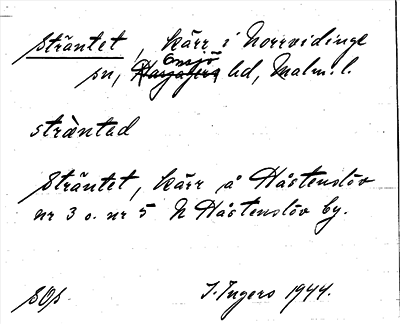 sträntet, kärr i Norrvidinge
Onsjö
sn, Harjagers hd, Malm. l.
strὰntad
Sträntet, kärr å Håstenslöv
nr 3 o. nr 5 N Håstenslöv by.
I. Ingers 1944.